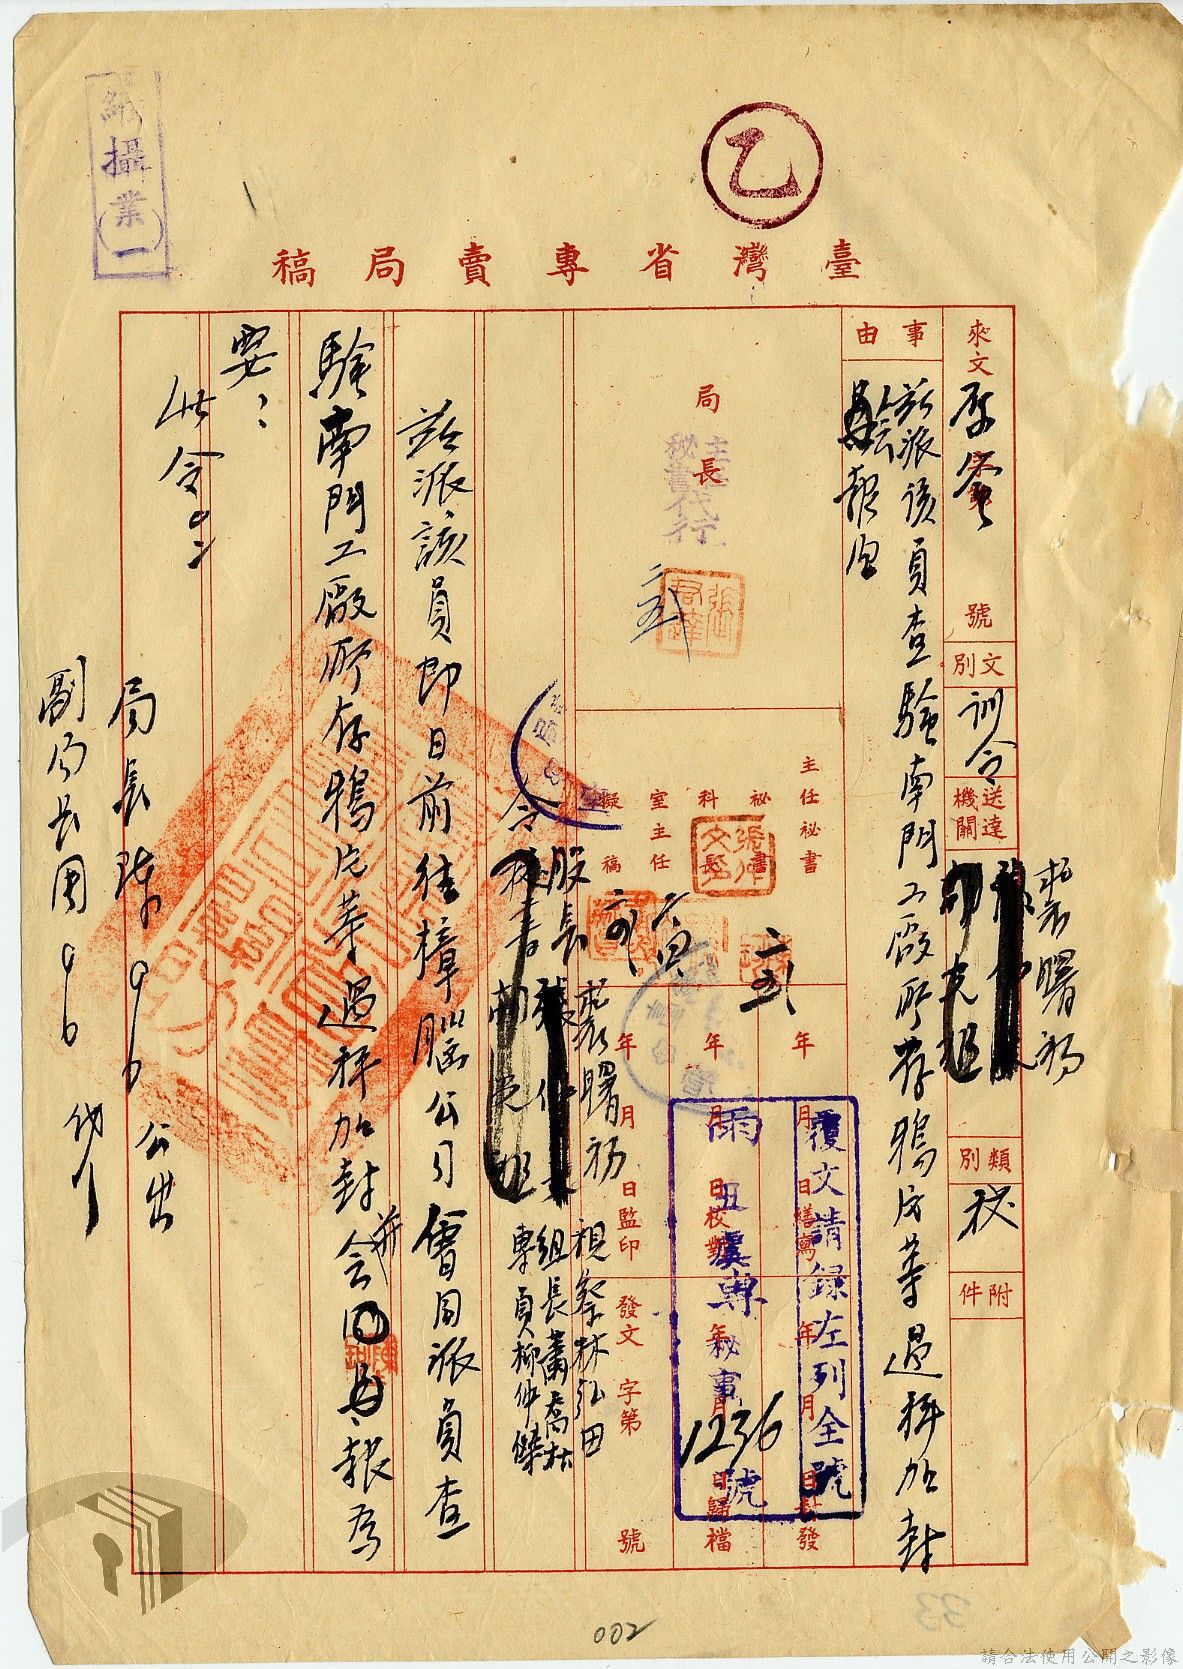 乙
縮攝業(一)
臺灣省專賣局稿
來文 字第 號
文別 訓令
送達機關 裘曙舫
類別 秘
附件
事由
茲派該員查驗南門工廠所存鴉片等過秤加封
具報由
局長
主任秘書代行
主任秘書
秘書
科長
室主任
擬稿
年 月 日繕寫
年 月 日校對
年 月 日監印
年 月 日封發
年 月 日歸檔
發文 字第 號
覆文請錄左列全號
雨丑虞專秘事
1236
號
令
股長 裘曙舫
視察林弘田
組長蕭喬林
專員柳仲傑
茲派該員即日前往樟腦公司會同派員查
驗南門工廠所存鴉片等過秤加封并會同具報為
要:
此令。
局長陳 公出
副局長周 代
002
33
請合法使用公開之影像